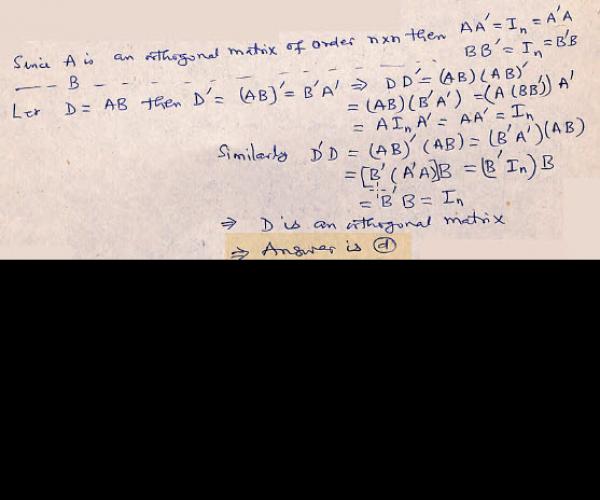 Since A is an orthogonal matrix of order n×n then AA' = In = A'A
—— B - - - - - - - - - - - BB' = In = B'B
Let D = AB then D' = (AB)' = B'A' ⇒ DD' = (AB)(AB)'
= (AB)(B'A') = (A(BB'))A'
= A In A' = AA' = In
Similarly D'D = (AB)'(AB) = (B'A')(AB)
= [B'(A'A)]B = (B' In) B
= B'B = In
⇒ D is an orthogonal matrix
⇒ Answer is ⓓ